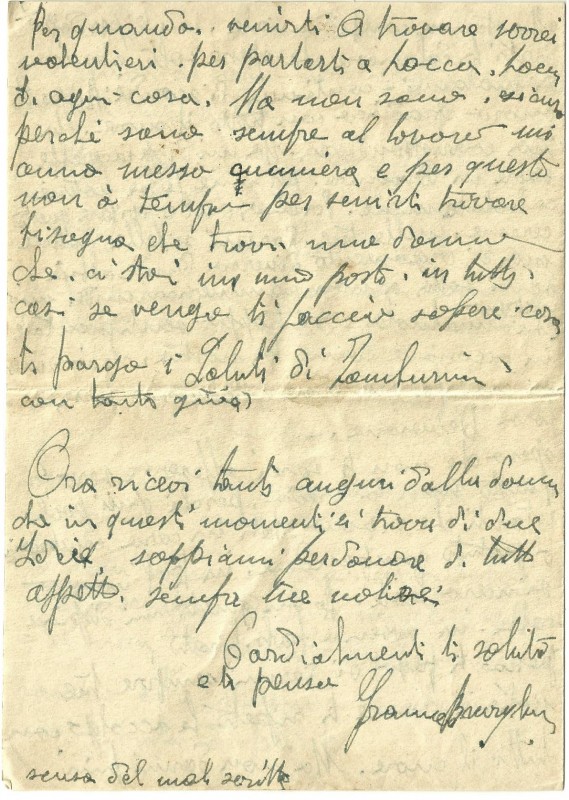 Per quando. venirti a trovare vorrei
volentieri. per parlarti a bocca. bocca
di ogni cosa. Ma non sono. sicura
perché sono sempre al lavoro mi
anno messo e per questo
non ò tempo per venirti trovare
bisogna che trovi una donna
che. ci stai in mio posto. in tutti.
casi se vengo ti faccio sapere. cosi
ti porgo i Saluti di Tamburini
con tanti
Ora ricevi tanti auguri dalla donna
che in questi momenti si trova di due
Idee, sappiami perdonare di tutto
aspetto. sempre tue notizie
Cordialmenti ti saluto
e ti pensa
Franca
scusa del mal scritto